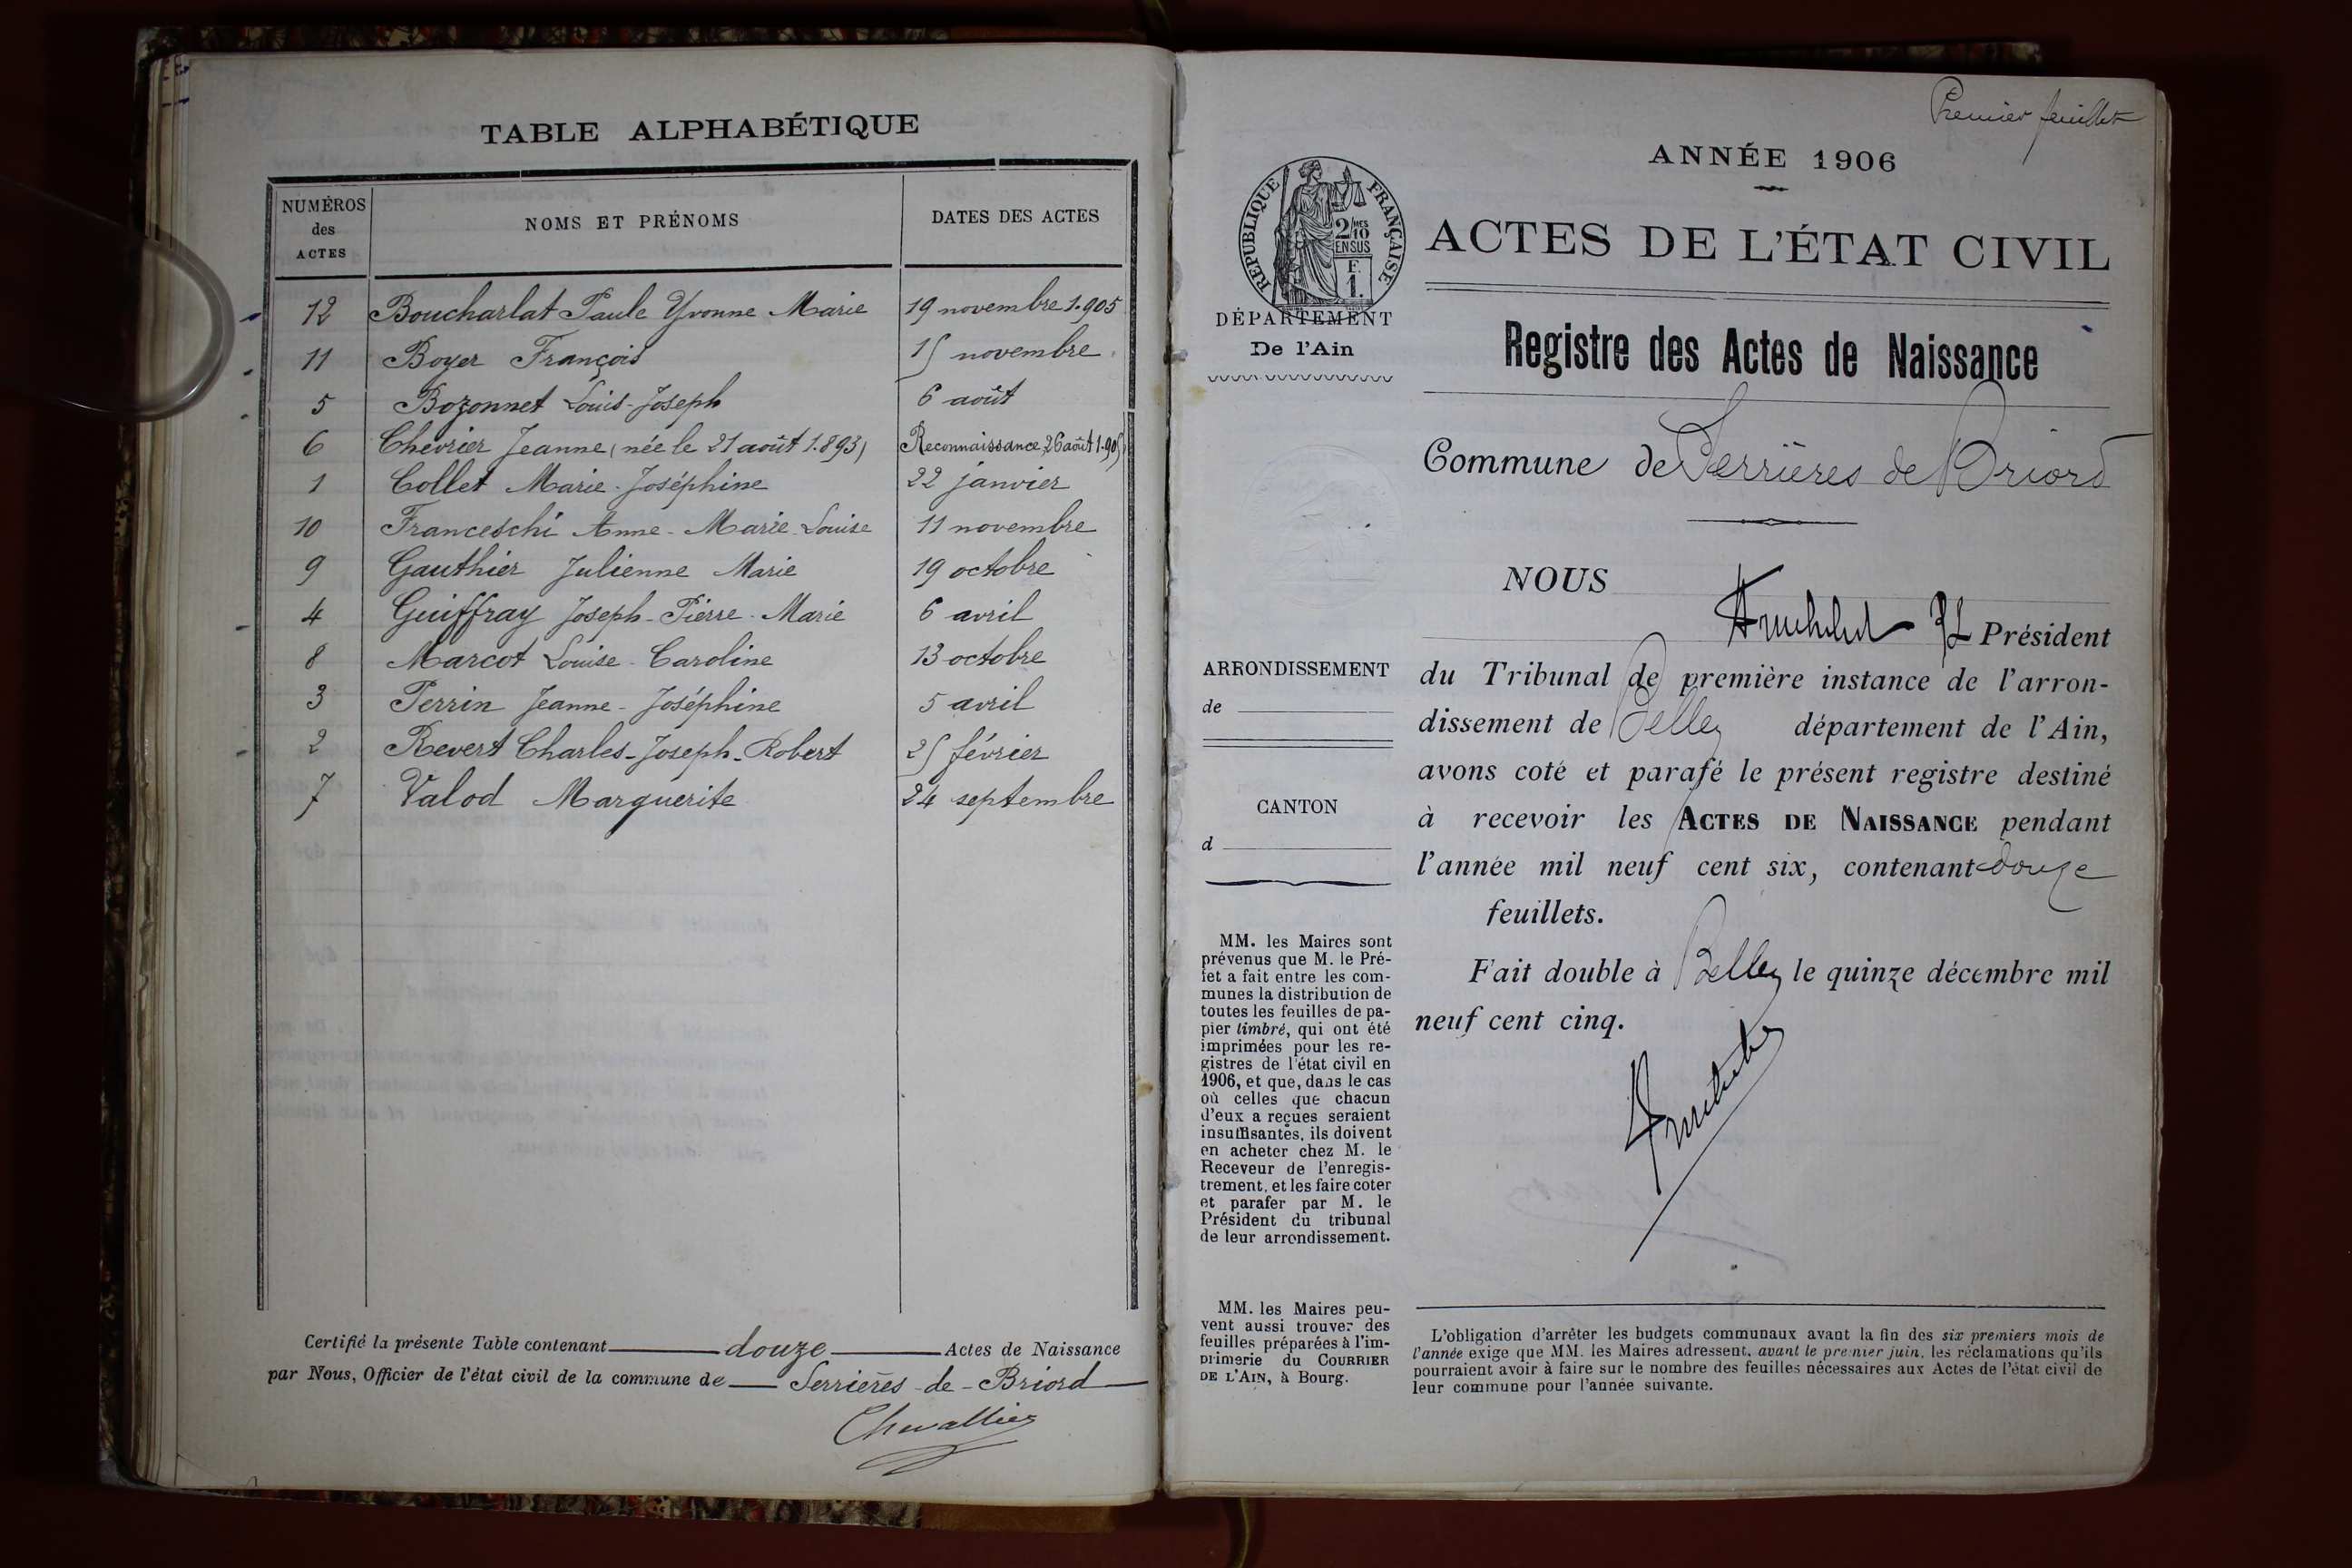 TABLE ALPHABÉTIQUE
NUMÉROS des ACTES
NOMS ET PRÉNOMS
DATES DES ACTES
12 Boucharlat Paule Yvonne Marie 19 novembre 1.905
11 Boyer François 15 novembre
5 Bozonnet Louis-Joseph 6 août
6 Chevrier Jeanne (née le 21 août 1.893) Reconnaissance 26 août 1.905
1 Collet Marie-Joséphine 22 janvier
10 Franceschi Anne-Marie-Louise 11 novembre
9 Gauthier Julienne Marie 19 octobre
4 Guiffray Joseph-Pierre-Marie 6 avril
8 Marcot Louise-Caroline 13 octobre
3 Perrin Jeanne-Joséphine 5 avril
2 Revert Charles-Joseph-Robert 25 février
7 Valod Marguerite 24 septembre
Certifié la présente Table contenant douze Actes de Naissance
par Nous, Officier de l'état civil de la commune de Serrières-de-Briord
Chevallier
Premier feuillet
ANNÉE 1906
RÉPUBLIQUE FRANÇAISE
2/10 MES
EN SUS
F.
1.
ACTES DE L'ÉTAT CIVIL
DÉPARTEMENT
De l'Ain
Registre des Actes de Naissance
Commune de Serrières de Briord
NOUS
Président
ARRONDISSEMENT
de
CANTON
d
du Tribunal de première instance de l'arron-
dissement de Belley département de l'Ain,
avons coté et parafé le présent registre destiné
à recevoir les ACTES DE NAISSANCE pendant
l'année mil neuf cent six, contenant douze
feuillets.
Fait double à Belley le quinze décembre mil
neuf cent cinq.
MM. les Maires sont
prévenus que M. le Pré-
fet a fait entre les com-
munes la distribution de
toutes les feuilles de pa-
pier timbré, qui ont été
imprimées pour les re-
gistres de l'état civil en
1906, et que, dans le cas
où celles que chacun
d'eux a reçues seraient
insuffisantes, ils doivent
en acheter chez M. le
Receveur de l'enregis-
trement, et les faire coter
et parafer par M. le
Président du tribunal
de leur arrondissement.
MM. les Maires peu-
vent aussi trouver des
feuilles préparées à l'im-
primerie du COURRIER
DE L'AIN, à Bourg.
L'obligation d'arrêter les budgets communaux avant la fin des six premiers mois de
l'année exige que MM. les Maires adressent, avant le premier juin, les réclamations qu'ils
pourraient avoir à faire sur le nombre des feuilles nécessaires aux Actes de l'état civil de
leur commune pour l'année suivante.